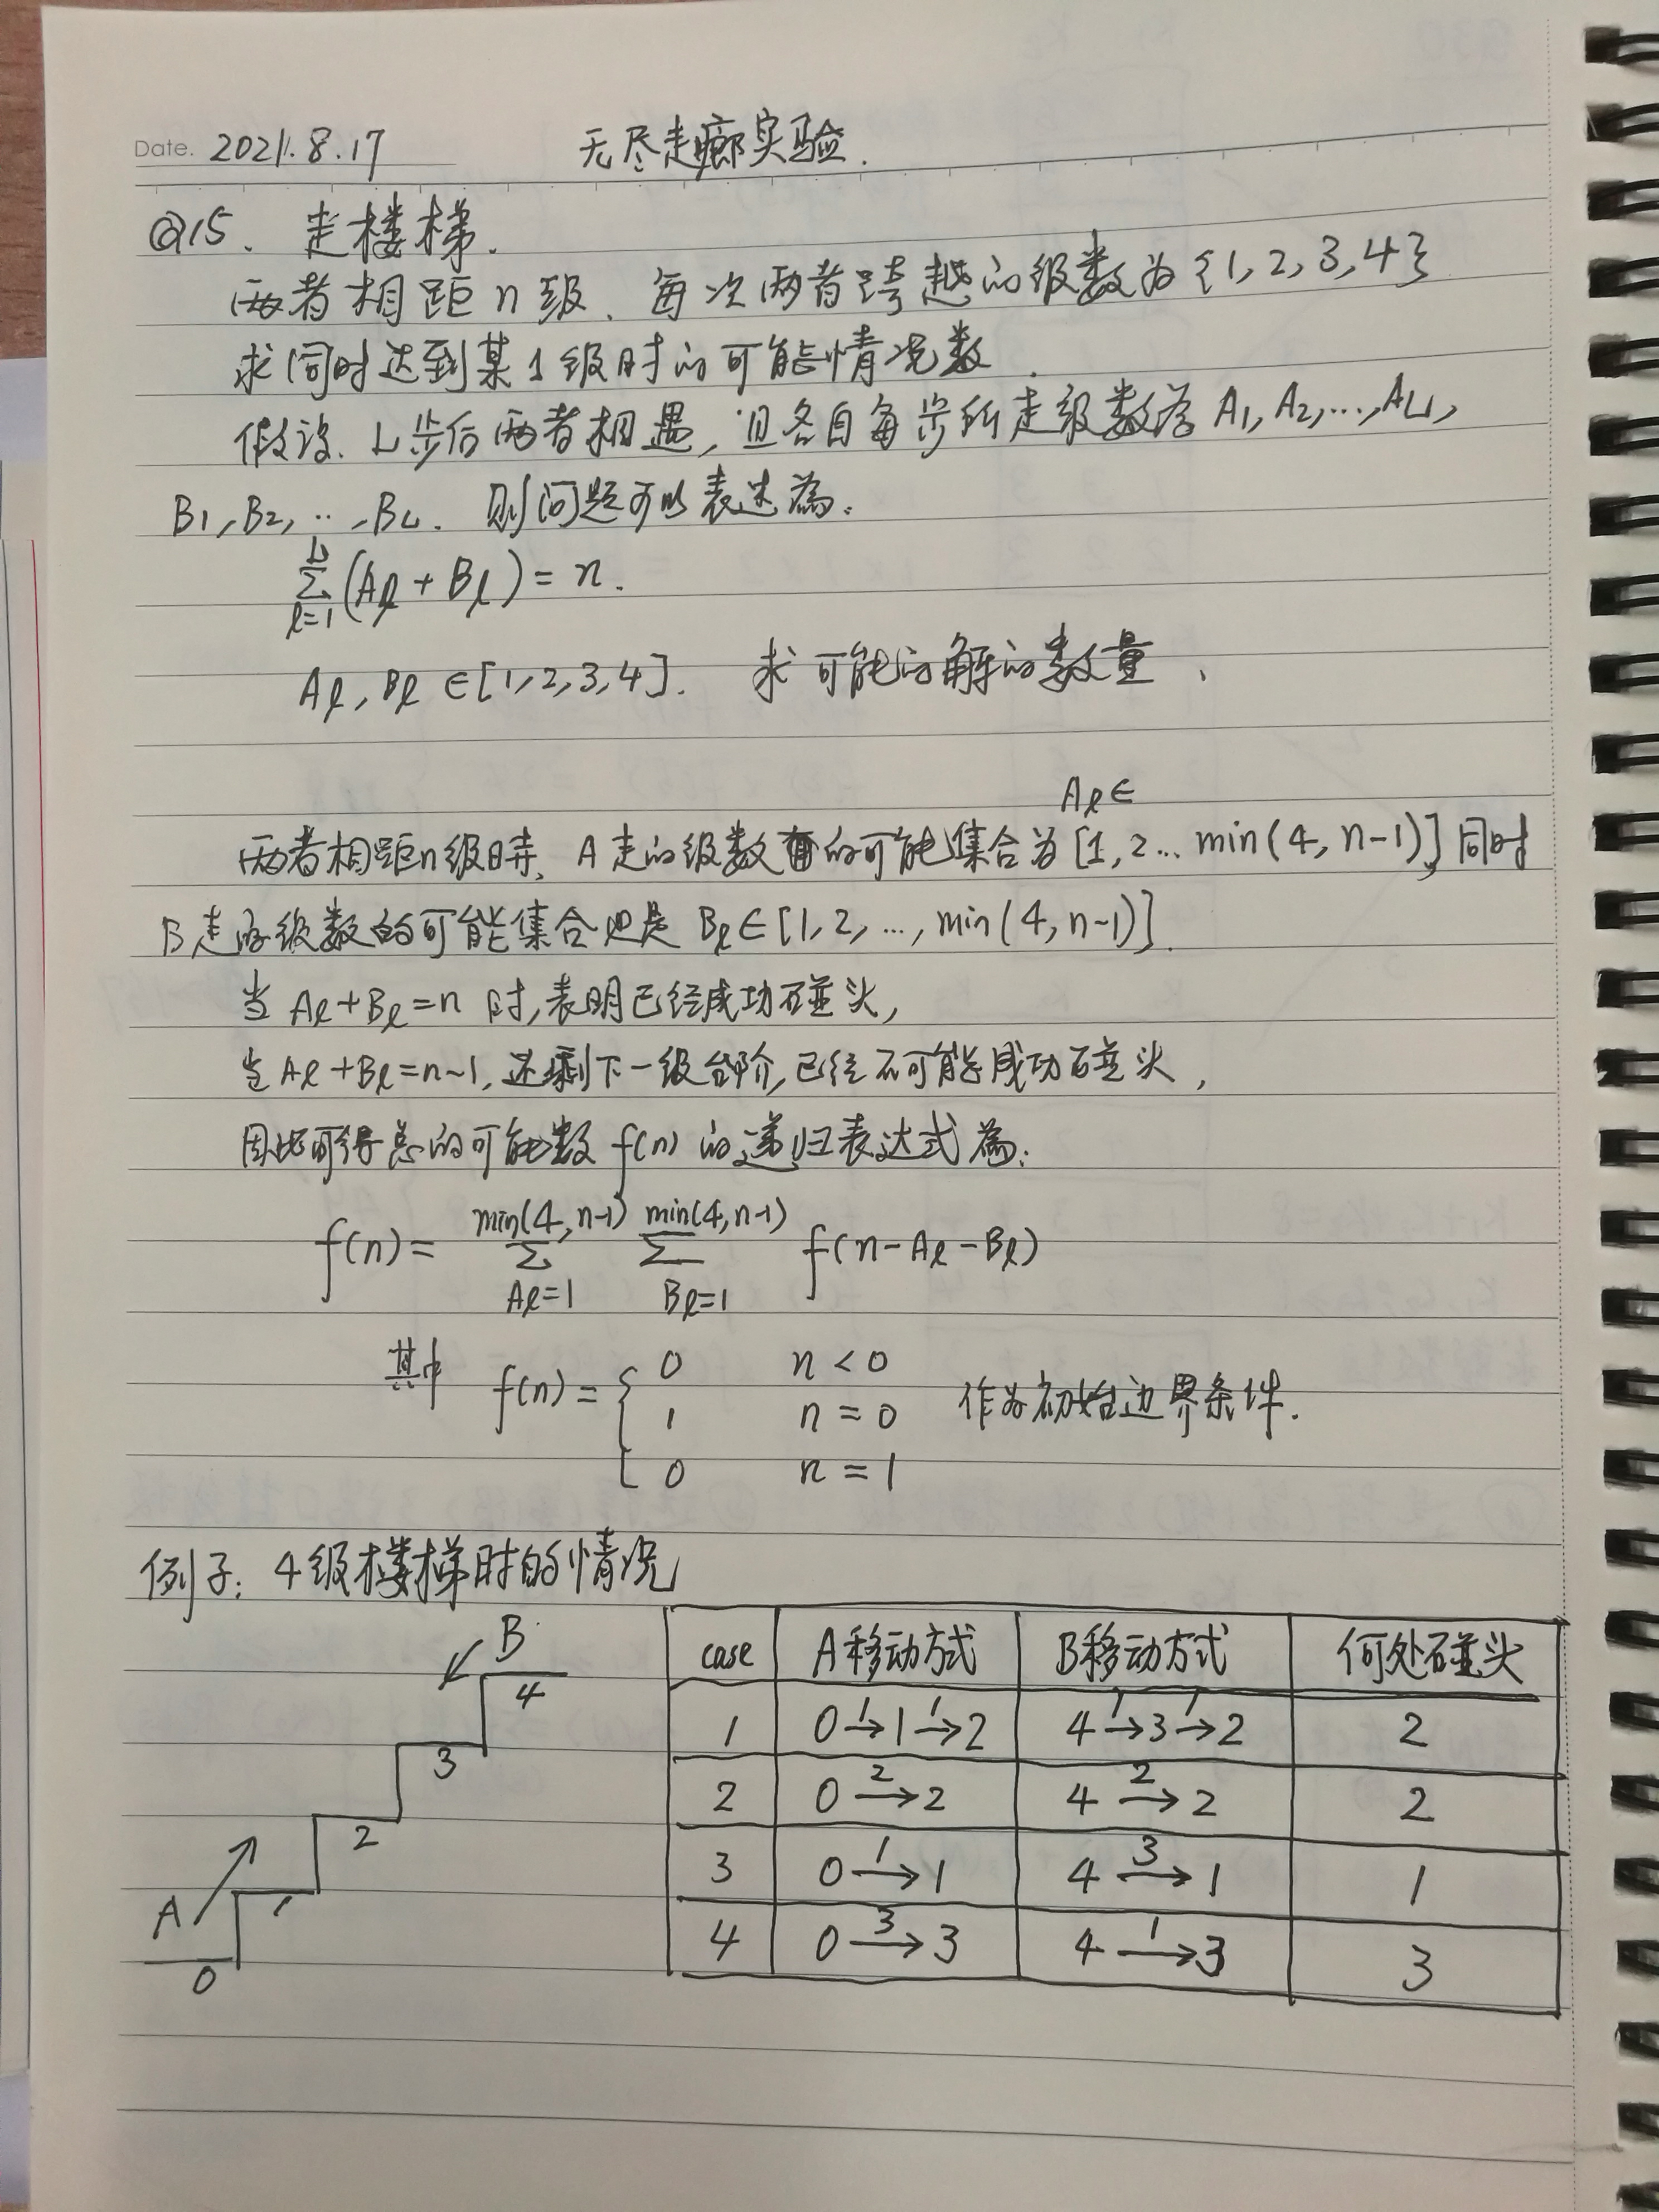 Date. 2021.8.17 无尽走廊实验.
Q15. 走楼梯.
两者相距n级. 每次两者跨越的级数为{1,2,3,4}
求同时达到某1级时的可能情况数.
假设. L步后两者相遇, 且各自每步所走级数为 A1, A2, ..., AL,
B1, B2, ..., BL. 则问题可以表述為:
\sum_{ℓ=1}^{L} (Aℓ + Bℓ) = n.
Aℓ, Bℓ ∈ [1,2,3,4]. 求可能的解的数量.
Aℓ∈
两者相距n级时, A走的级数的可能集合为[1,2... min(4, n-1)], 同时
B走的级数的可能集合也是 Bℓ∈[1,2, ..., min(4, n-1)].
当 Aℓ+Bℓ=n 时,表明已经成功碰头,
当 Aℓ+Bℓ=n-1, 还剩下一级台阶, 已经不可能成功碰头,
因此可得总的可能数 f(n) 的递归表达式為:
f(n) = \sum_{Aℓ=1}^{min(4,n-1)} \sum_{Bℓ=1}^{min(4,n-1)} f(n-Aℓ-Bℓ)
其中 f(n) = { 0 n<0
1 n=0 作为初始边界条件.
0 n=1
例子: 4级楼梯时的情况
B
4
3
2
A
1
0
case A移动方式 B移动方式 何处碰头
1 0 \xrightarrow{1} 1 \xrightarrow{1} 2 4 \xrightarrow{1} 3 \xrightarrow{1} 2 2
2 0 \xrightarrow{2} 2 4 \xrightarrow{2} 2 2
3 0 \xrightarrow{1} 1 4 \xrightarrow{3} 1 1
4 0 \xrightarrow{3} 3 4 \xrightarrow{1} 3 3